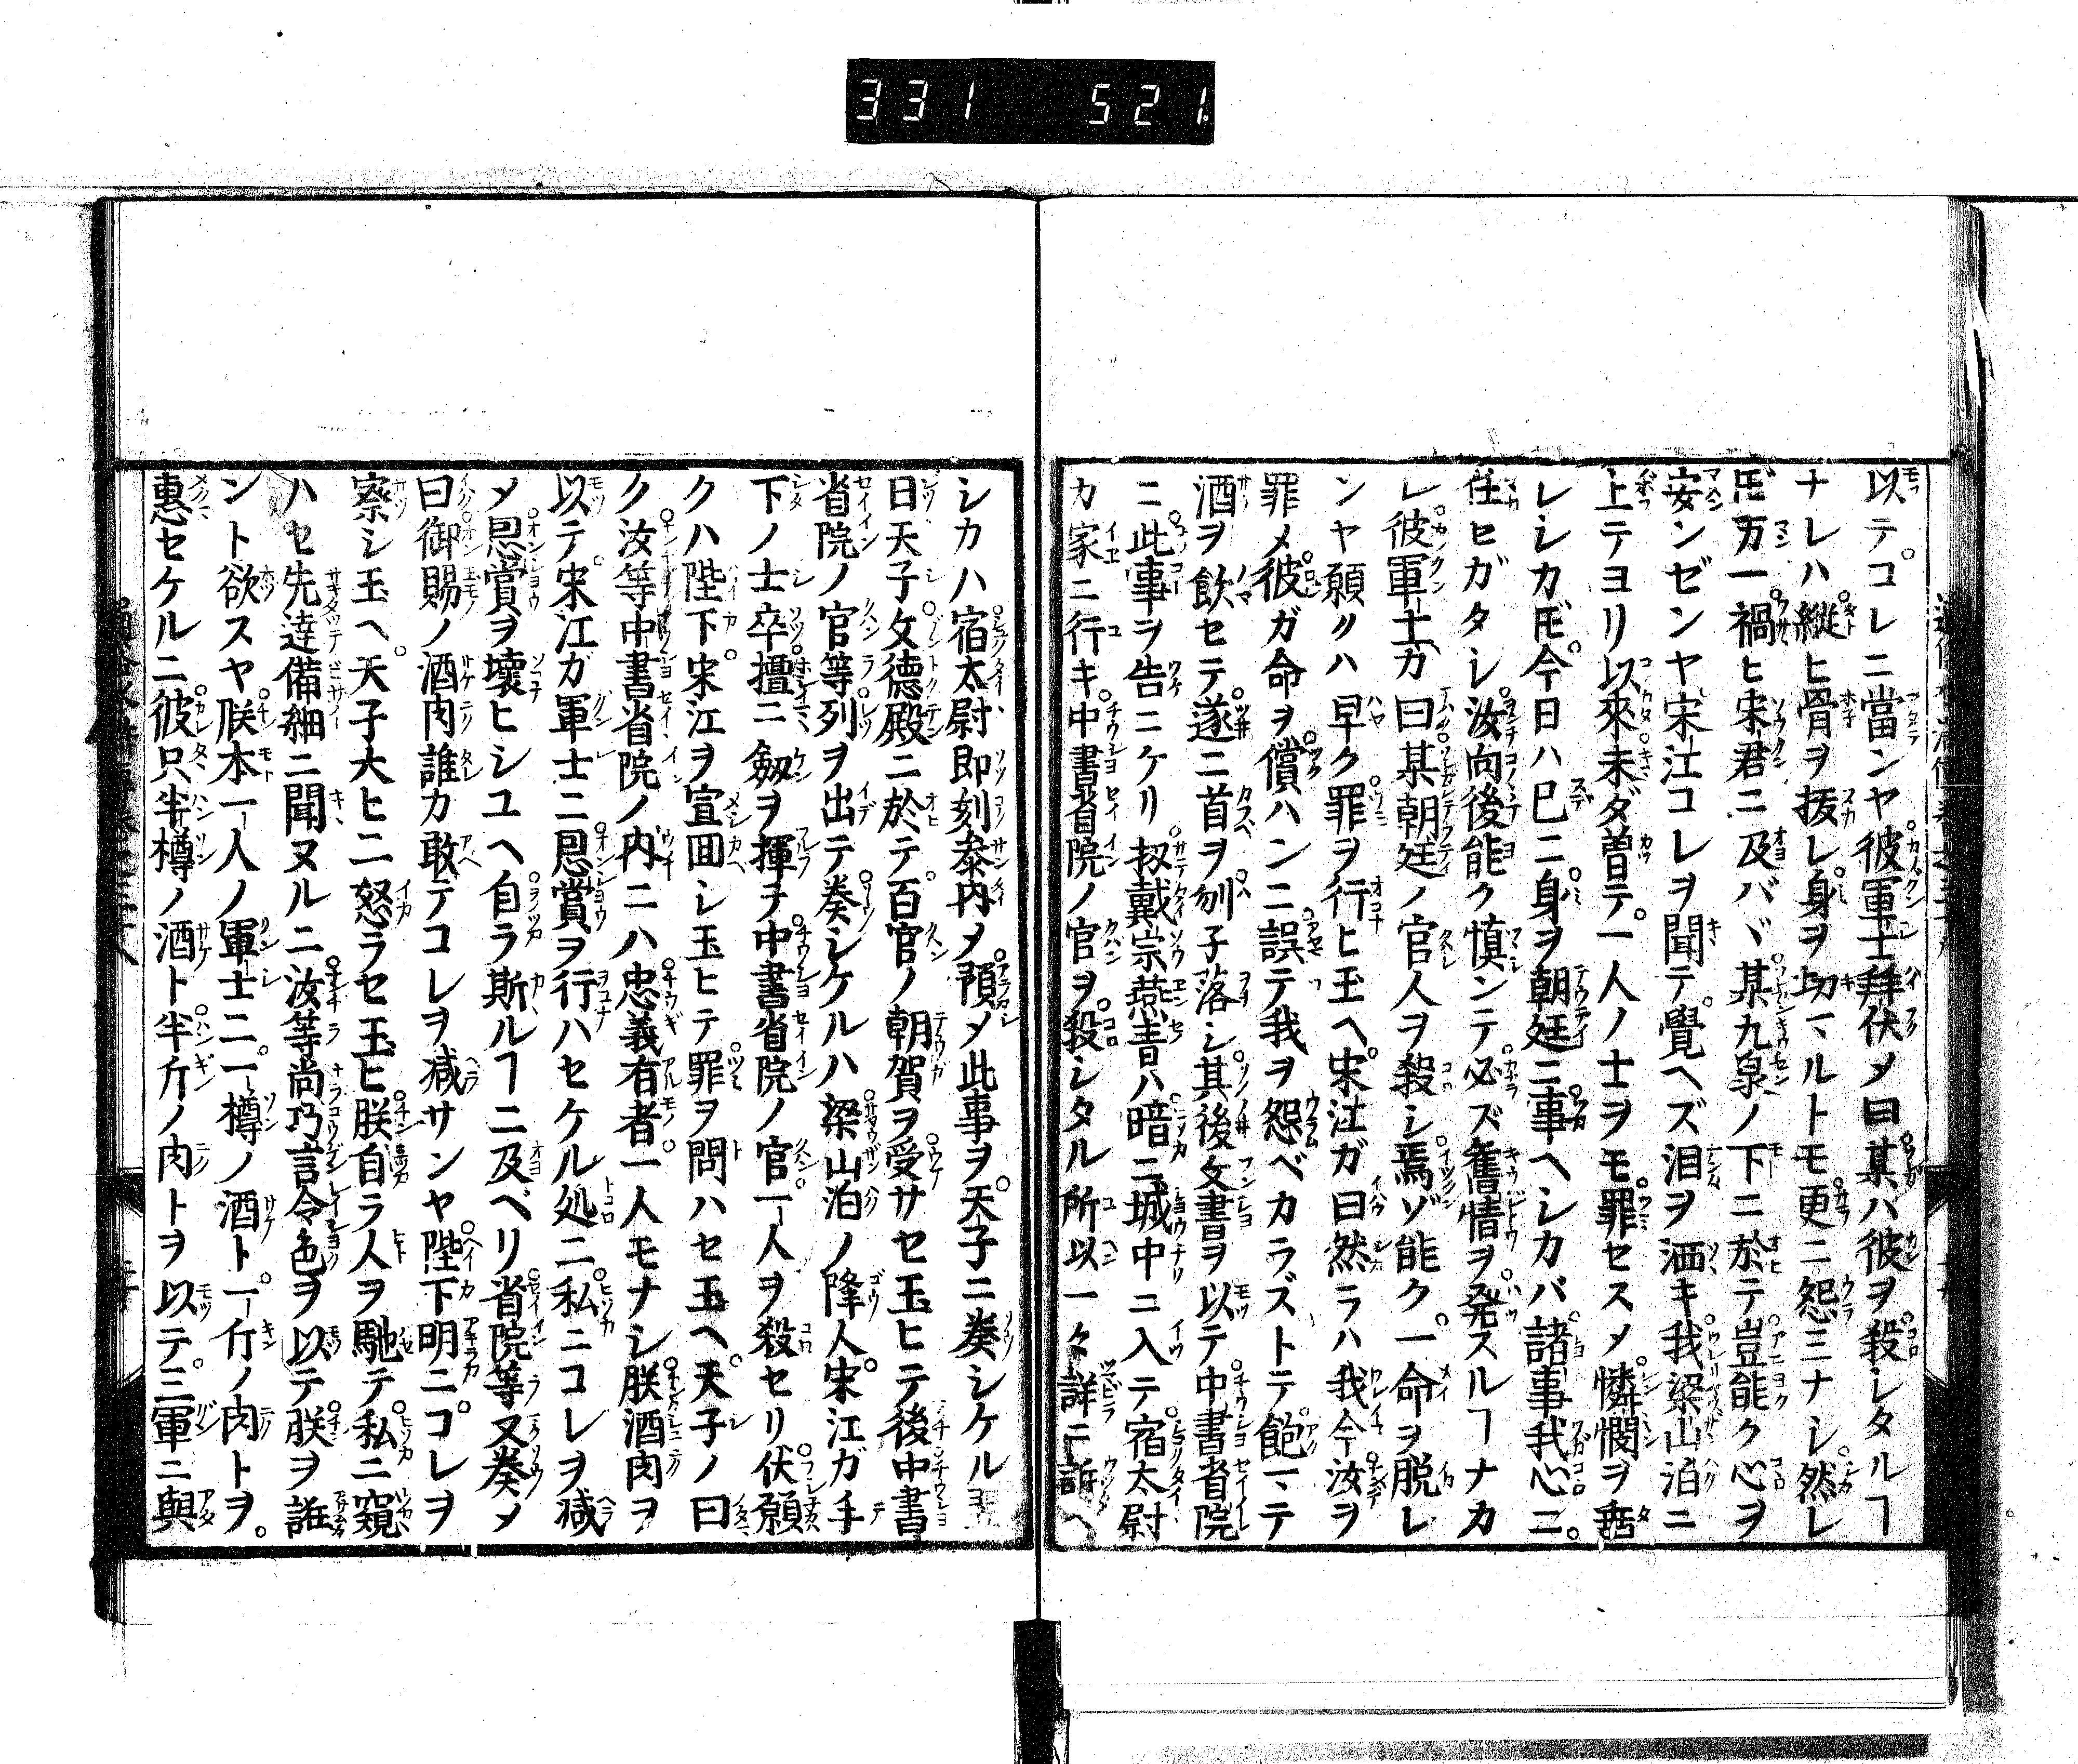 331 521
以テコレニ當ンヤ彼軍士拜伏メ曰某ハ彼ヲ殺シタルヿ
ナレハ縱ヒ骨ヲ拔レ身ヲ切ヽルトモ更ニ怨ミナシ然レ
𪜈万一禍ヒ宋君ニ及バヾ某九泉ノ下ニ於テ豈能ク心ヲ
安ンゼンヤ宋江コレヲ聞テ覺ヘズ泪ヲ洒キ我梁山泊ニ
上テヨリ以來未ダ曽テ一人ノ士ヲモ罪セスメ憐憫ヲ垂
レシカ𪜈今日ハ已ニ身ヲ朝廷ニ事ヘシカバ諸事我心ニ
任ヒガタシ汝向後能ク慎ンテ必ズ舊情ヲ発スルヿナカ
レ彼軍士カ曰某朝廷ノ官人ヲ殺シ焉ゾ能ク一命ヲ脱レ
ンヤ願クハ早ク罪ヲ行ヒ玉ヘ宋江ガ曰然ラハ我今汝ヲ
罪メ彼ガ命ヲ償ハンニ誤テ我ヲ怨ベカラズトテ飽マテ
酒ヲ飲セテ遂ニ首ヲ刎子落シ其後文書ヲ以テ中書省院
ニ此事ヲ告ニケリ扨戴宗燕青ハ暗ニ城中ニ入テ宿太尉
カ家ニ行キ中書省院ノ官ヲ殺シタル所以一々詳ニ訴ヘ
シカハ宿太尉即刻叅内メ預メ此事ヲ天子ニ奏シケル
日天子文德殿ニ於テ百官ノ朝賀ヲ受サセ玉ヒテ後中書
省院ノ官等列ヲ出テ奏シケルハ梁山泊ノ降人宋江ガ手
下ノ士卒擅ニ劔ヲ揮テ中書省院ノ官一人ヲ殺セリ伏願
クハ陛下宋江ヲ宣回シ玉ヒテ罪ヲ問ハセ玉ヘ天子ノ曰
ク汝等中書省院ノ内ニハ忠義有者一人モナシ朕酒肉ヲ
以テ宋江ガ軍士ニ恩賞ヲ行ハセケル処ニ私ニコレヲ减
メ恩賞ヲ壞ヒシユヘ自ラ斯ルヿニ及ベリ省院等又奏メ
曰御賜ノ酒肉誰カ敢テコレヲ减サンヤ陛下明ニコレヲ
察シ玉ヘ天子大ヒニ怒ラセ玉ヒ朕自ラ人ヲ馳テ私ニ窺
ハセ先達備細ニ聞ヌルニ汝等尚巧言令色ヲ以テ朕ヲ誑
ント欲スヤ朕本一人ノ軍士ニ一樽ノ酒ト一斤ノ肉トヲ
惠セケルニ彼只半樽ノ酒ト半斤ノ肉トヲ以テ三軍ニ與